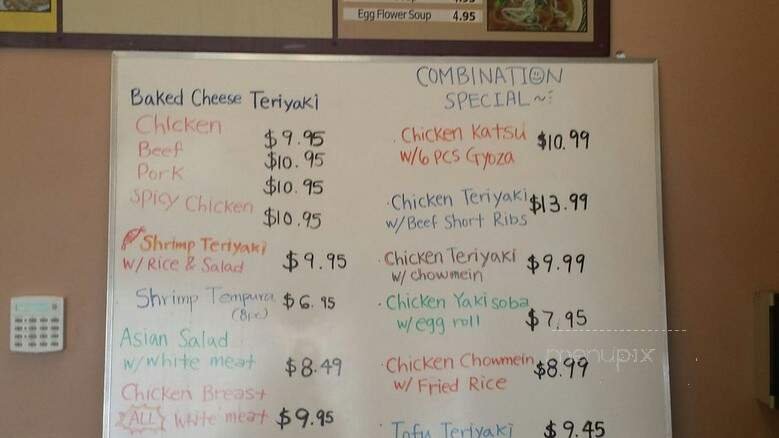 Egg Flower Soup 4.95
Baked Cheese Teriyaki
Chicken $9.95
Beef $10.95
Pork $10.95
Spicy Chicken $10.95
Shrimp Teriyaki
w/ Rice & Salad $9.95
Shrimp Tempura $6.95
(8pc)
Asian Salad
w/white meat $8.49
Chicken Breast
ALL white meat $9.95
COMBINATION
SPECIAL~
Chicken Katsu $10.99
w/6 PCS Gyoza
Chicken Teriyaki $13.99
w/Beef Short Ribs
Chicken Teriyaki $9.99
w/chowmein
Chicken Yakisoba
w/egg roll $7.95
Chicken Chowmein $8.99
w/ Fried Rice
Tofu Teriyaki $9.45
menupix